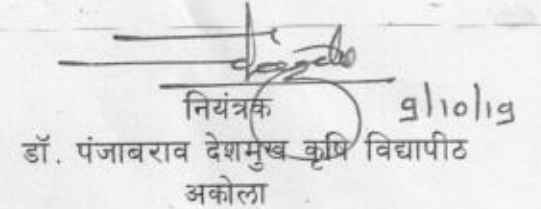 नियंत्रक
9/10/19
डॉ. पंजाबराव देशमुख कृषि विद्यापीठ
अकोला